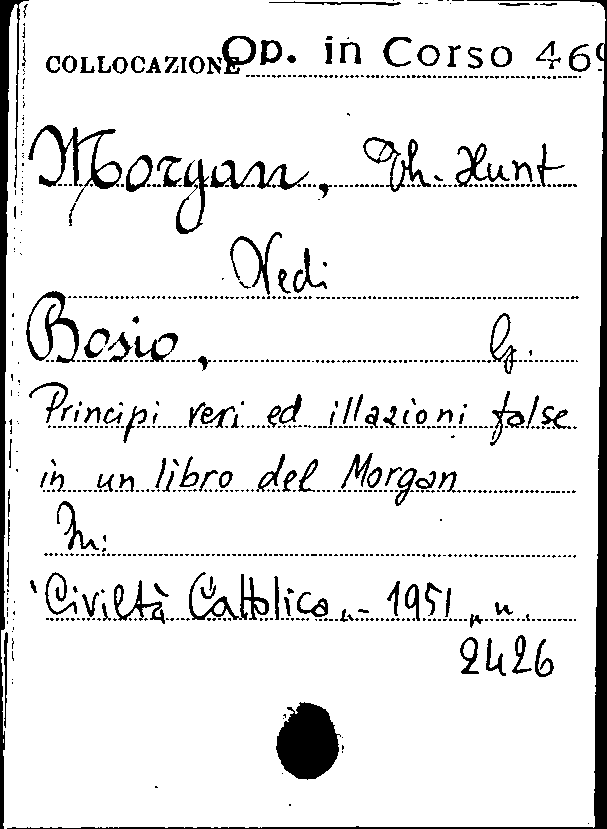 COLLOCAZIONE Op. in Corso 469
Morgan, Th. Hunt
Vedi
Bosio, G.
Principi veri ed illazioni false
in un libro del Morgan
In:
"Civiltà Cattolica" - 1951, n.
2426